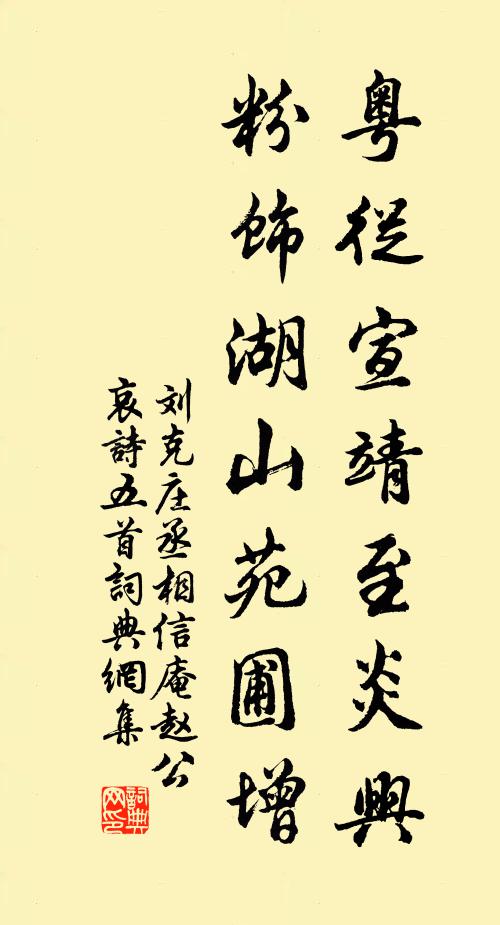 粤從宣靖至炎興
粉飾湖山苑圃增
刘克庄丞相信庵赵公
哀詩五首詞典網集
詞典网印